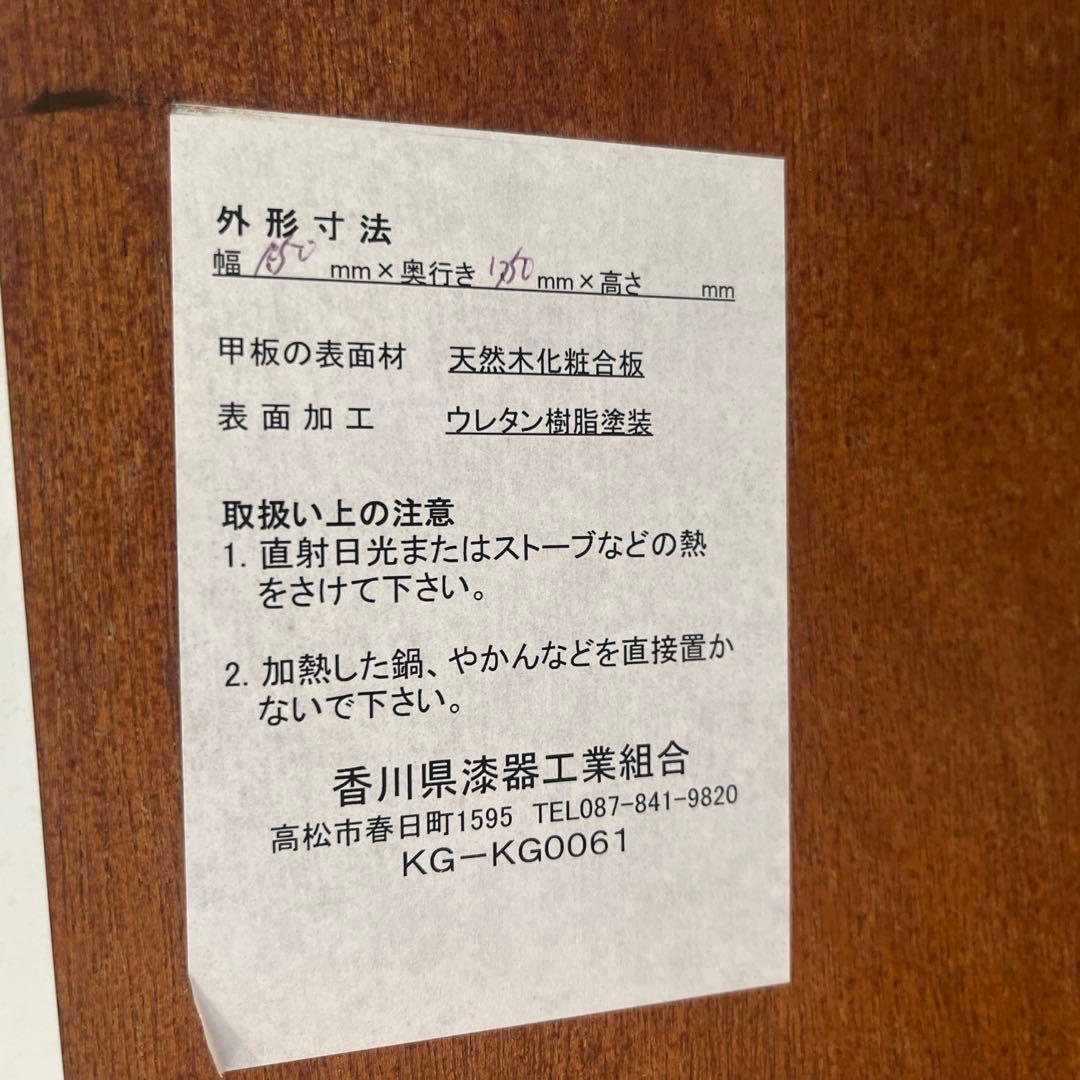 外形寸法
幅 mm×奥行き mm×高さ mm
甲板の表面材 天然木化粧合板
表面加工 ウレタン樹脂塗装
取扱い上の注意
1. 直射日光またはストーブなどの熱
をさけて下さい。
2. 加熱した鍋、やかんなどを直接置か
ないで下さい。
香川県漆器工業組合
高松市春日町1595 TEL087-841-9820
KG-KG0061